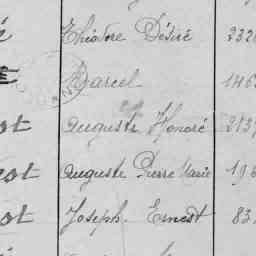 é Théodore Désiré 232
Marcel 146
ot Auguste Honoré 213
ot Auguste Pierre Marie 196
ot Joseph Ernest 83